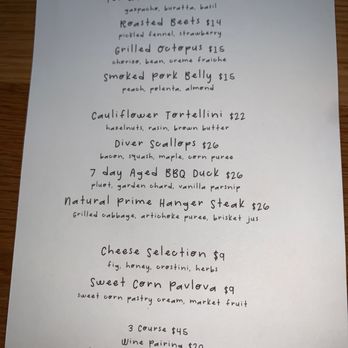 gaspacho, buratta, basil
Roasted Beets $14
pickled fennel, strawberry
Grilled Octopus $15
choriso, bean, creme fraiche
Smoked Pork Belly $15
peach, polenta, almond
Cauliflower Tortellini $22
haselnuts, rasin, brown butter
Diver Scallops $26
bacon, squash, maple, corn puree
7 day Aged BBQ Duck $26
pluot, garden chard, vanilla parsnip
Natural Prime Hanger Steak $26
Grilled cabbage, artichoke puree, brisket jus
Cheese Selection $9
fig, honey, crostini, herbs
Sweet Corn Pavlova $9
sweet corn pastry cream, market fruit
3 Course $45
Wine Pairing $20